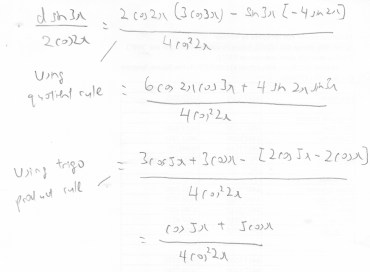 d sin3x / 2cos2x = 2cos2x (3cos3x) - sin3x [-4sin2x] / 4cos²2x
Using quotient rule
= 6cos2xcos3x + 4sin2xsin3x / 4cos²2x
Using trigo product rule
= 3cos5x + 3cosx - [2cos5x - 2cosx] / 4cos²2x
= cos5x + 5cosx / 4cos²2x